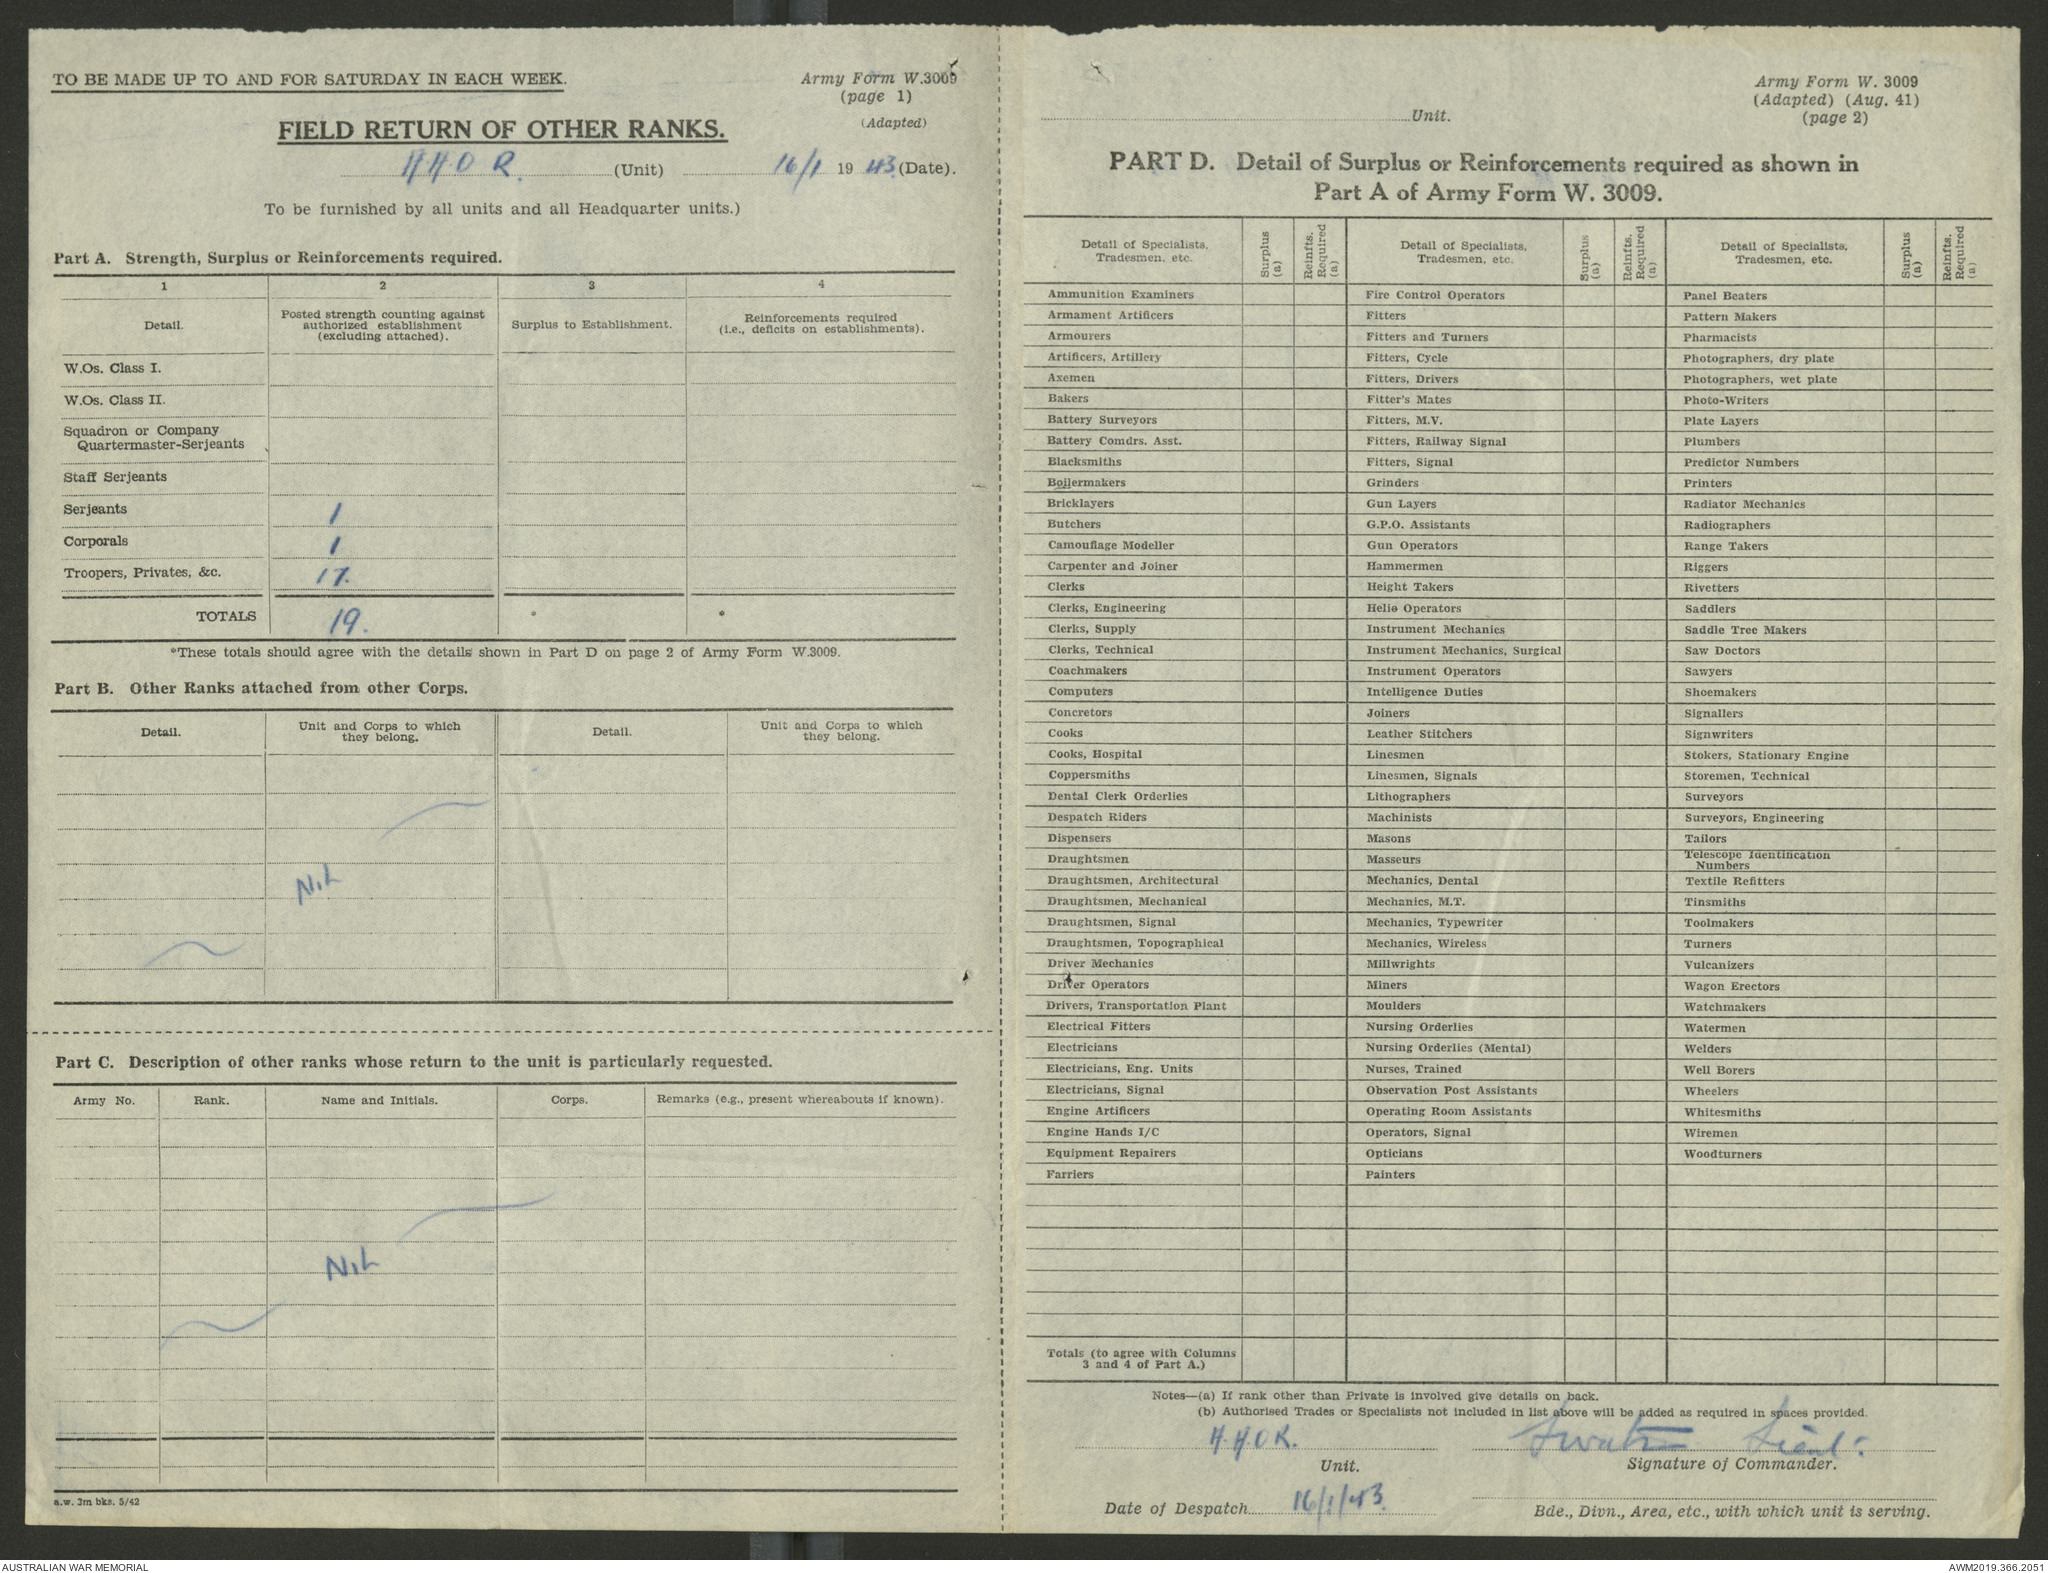 TO BE MADE UP TO AND FOR SATURDAY IN EACH WEEK.
Army Form W.3009
(page 1)
(Adapted)
FIELD RETURN OF OTHER RANKS.
H.H.O.R. (Unit) 16/1 1943. (Date).
To be furnished by all units and all Headquarter units.)
Part A. Strength, Surplus or Reinforcements required.
1 2 3 4
Detail. Posted strength counting against authorized establishment (excluding attached). Surplus to Establishment. Reinforcements required (i.e., deficits on establishments).
W.Os. Class I.
W.Os. Class II.
Squadron or Company
Quartermaster-Serjeants
Staff Serjeants
Serjeants 1
Corporals 1
Troopers, Privates, &c. 17.
TOTALS 19. * *
*These totals should agree with the details shown in Part D on page 2 of Army Form W.3009.
Part B. Other Ranks attached from other Corps.
Detail. Unit and Corps to which they belong. Detail. Unit and Corps to which they belong.
Nil
Part C. Description of other ranks whose return to the unit is particularly requested.
Army No. Rank. Name and Initials. Corps. Remarks (e.g., present whereabouts if known).
Nil
a.w. 3m bks. 5/42
Army Form W. 3009
(Adapted) (Aug. 41)
(page 2)
Unit.
PART D. Detail of Surplus or Reinforcements required as shown in
Part A of Army Form W. 3009.
Detail of Specialists, Tradesmen, etc. Surplus (a) Reinfts. Required (a) Detail of Specialists, Tradesmen, etc. Surplus (a) Reinfts. Required (a) Detail of Specialists, Tradesmen, etc. Surplus (a) Reinfts. Required (a)
Ammunition Examiners Fire Control Operators Panel Beaters
Armament Artificers Fitters Pattern Makers
Armourers Fitters and Turners Pharmacists
Artificers, Artillery Fitters, Cycle Photographers, dry plate
Axemen Fitters, Drivers Photographers, wet plate
Bakers Fitter's Mates Photo-Writers
Battery Surveyors Fitters, M.V. Plate Layers
Battery Comdrs. Asst. Fitters, Railway Signal Plumbers
Blacksmiths Fitters, Signal Predictor Numbers
Boilermakers Grinders Printers
Bricklayers Gun Layers Radiator Mechanics
Butchers G.P.O. Assistants Radiographers
Camouflage Modeller Gun Operators Range Takers
Carpenter and Joiner Hammermen Riggers
Clerks Height Takers Rivetters
Clerks, Engineering Helio Operators Saddlers
Clerks, Supply Instrument Mechanics Saddle Tree Makers
Clerks, Technical Instrument Mechanics, Surgical Saw Doctors
Coachmakers Instrument Operators Sawyers
Computers Intelligence Duties Shoemakers
Concretors Joiners Signallers
Cooks Leather Stitchers Signwriters
Cooks, Hospital Linesmen Stokers, Stationary Engine
Coppersmiths Linesmen, Signals Storemen, Technical
Dental Clerk Orderlies Lithographers Surveyors
Despatch Riders Machinists Surveyors, Engineering
Dispensers Masons Tailors
Draughtsmen Masseurs Telescope Identification Numbers
Draughtsmen, Architectural Mechanics, Dental Textile Refitters
Draughtsmen, Mechanical Mechanics, M.T. Tinsmiths
Draughtsmen, Signal Mechanics, Typewriter Toolmakers
Draughtsmen, Topographical Mechanics, Wireless Turners
Driver Mechanics Millwrights Vulcanizers
Driver Operators Miners Wagon Erectors
Drivers, Transportation Plant Moulders Watchmakers
Electrical Fitters Nursing Orderlies Watermen
Electricians Nursing Orderlies (Mental) Welders
Electricians, Eng. Units Nurses, Trained Well Borers
Electricians, Signal Observation Post Assistants Wheelers
Engine Artificers Operating Room Assistants Whitesmiths
Engine Hands I/C Operators, Signal Wiremen
Equipment Repairers Opticians Woodturners
Farriers Painters
Totals (to agree with Columns
3 and 4 of Part A.)
Notes—(a) If rank other than Private is involved give details on back.
(b) Authorised Trades or Specialists not included in list above will be added as required in spaces provided.
H.H.O.R. Lieut.
Unit. Signature of Commander.
Date of Despatch 16/1/43.
Bde., Divn., Area, etc., with which unit is serving.
AUSTRALIAN WAR MEMORIAL
AWM2019.366.2051